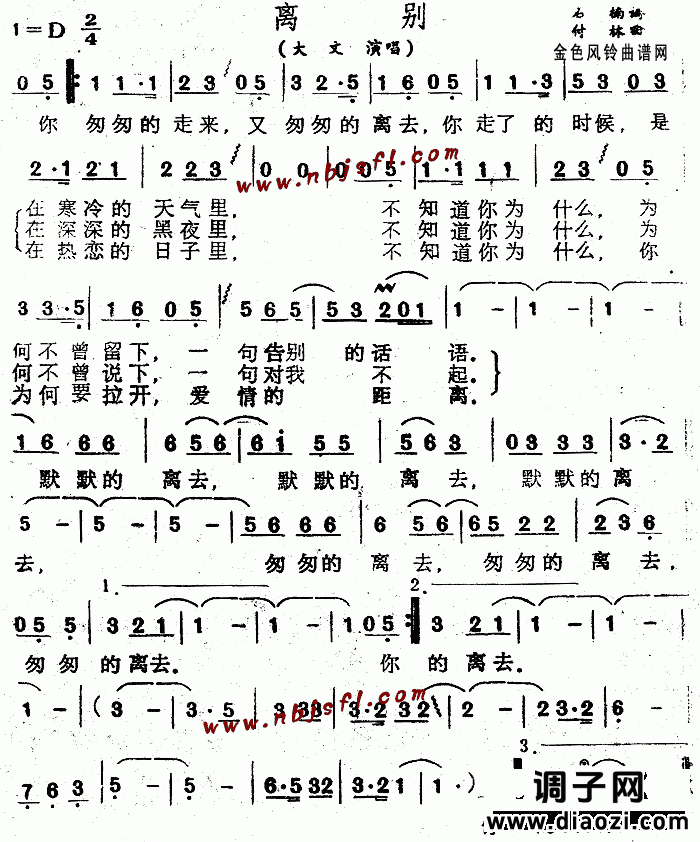 离 别
1=D 2/4
(大 文 演唱)
金色风铃曲谱网
0 5 1 1 1·1 2 3 0 5 3 2·5 0 5 1 1·3 5 3 0 3
你 匆匆的走来, 又 匆匆的离去, 你走了的时候, 是
2·1 2 1 2 2 3 0 0 0 0 5 1·1 1 1 2 3 0 5
www.nbjsfl.com
在寒冷的 天气里, 不 知道你为 什么, 为
在深深的 黑夜里, 不 知道你为 什么, 为
在热恋的 日子里, 不 知道你为 什么, 你
3 3·5 1 6 0 5 5 6 5 5 3 2 0 1 1 - 1 -
何不曾留下, 一 句告别 的话 语.
何不曾说下, 一 句对我 不 起.
为何要拉开, 爱 情的 距 离.
1 6 6 6 6 5 6 6 i 5 5 5 6 3 0 3 3 3 3·2
默默的 离去, 默默的 离去, 默默的离
5 - 5 - 5 - 5 6 6 6 6 5 6 6 5 2 2 2 3 6
去, 匆匆的 离去, 匆匆的 离去,
1. 2.
0 5 5 3 2 1 1 - 1 - 1 0 5 3 2 1 1 - 1 -
匆匆 的离去. 你 的离去.
1 - (3 - 3·5 3 3 3 3 3·2 3 2 2 - 2 3·2 6 -
www.nbjsfl.com
3.
7 6 3 5 - 5 - 6·5 3 2 3·2 1 1 -)
调子网
www.diaozi.com